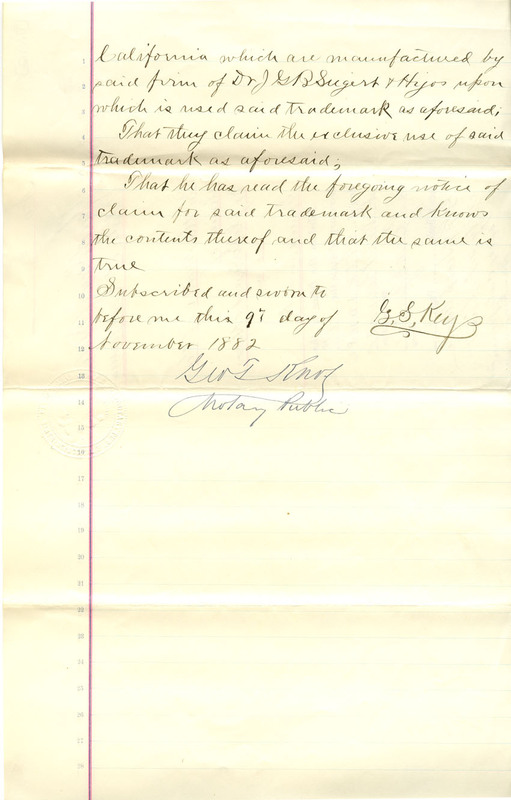 California which are manufactured by
said firm of Dr J G B Siegert & Hijos upon
which is used said trademark as aforesaid,
That they claim the exclusive use of said
trademark as aforesaid;
That he has read the foregoing notice of
claim for said trademark and knows
the contents thereof and that the same is
true
Subscribed and sworn to
before me this 9th day of
November 1882
G. S. Key
Geo T Knox
Notary Public
1
2
3
4
5
6
7
8
9
10
11
12
13
14
15
16
17
18
19
20
21
22
23
24
25
26
27
28